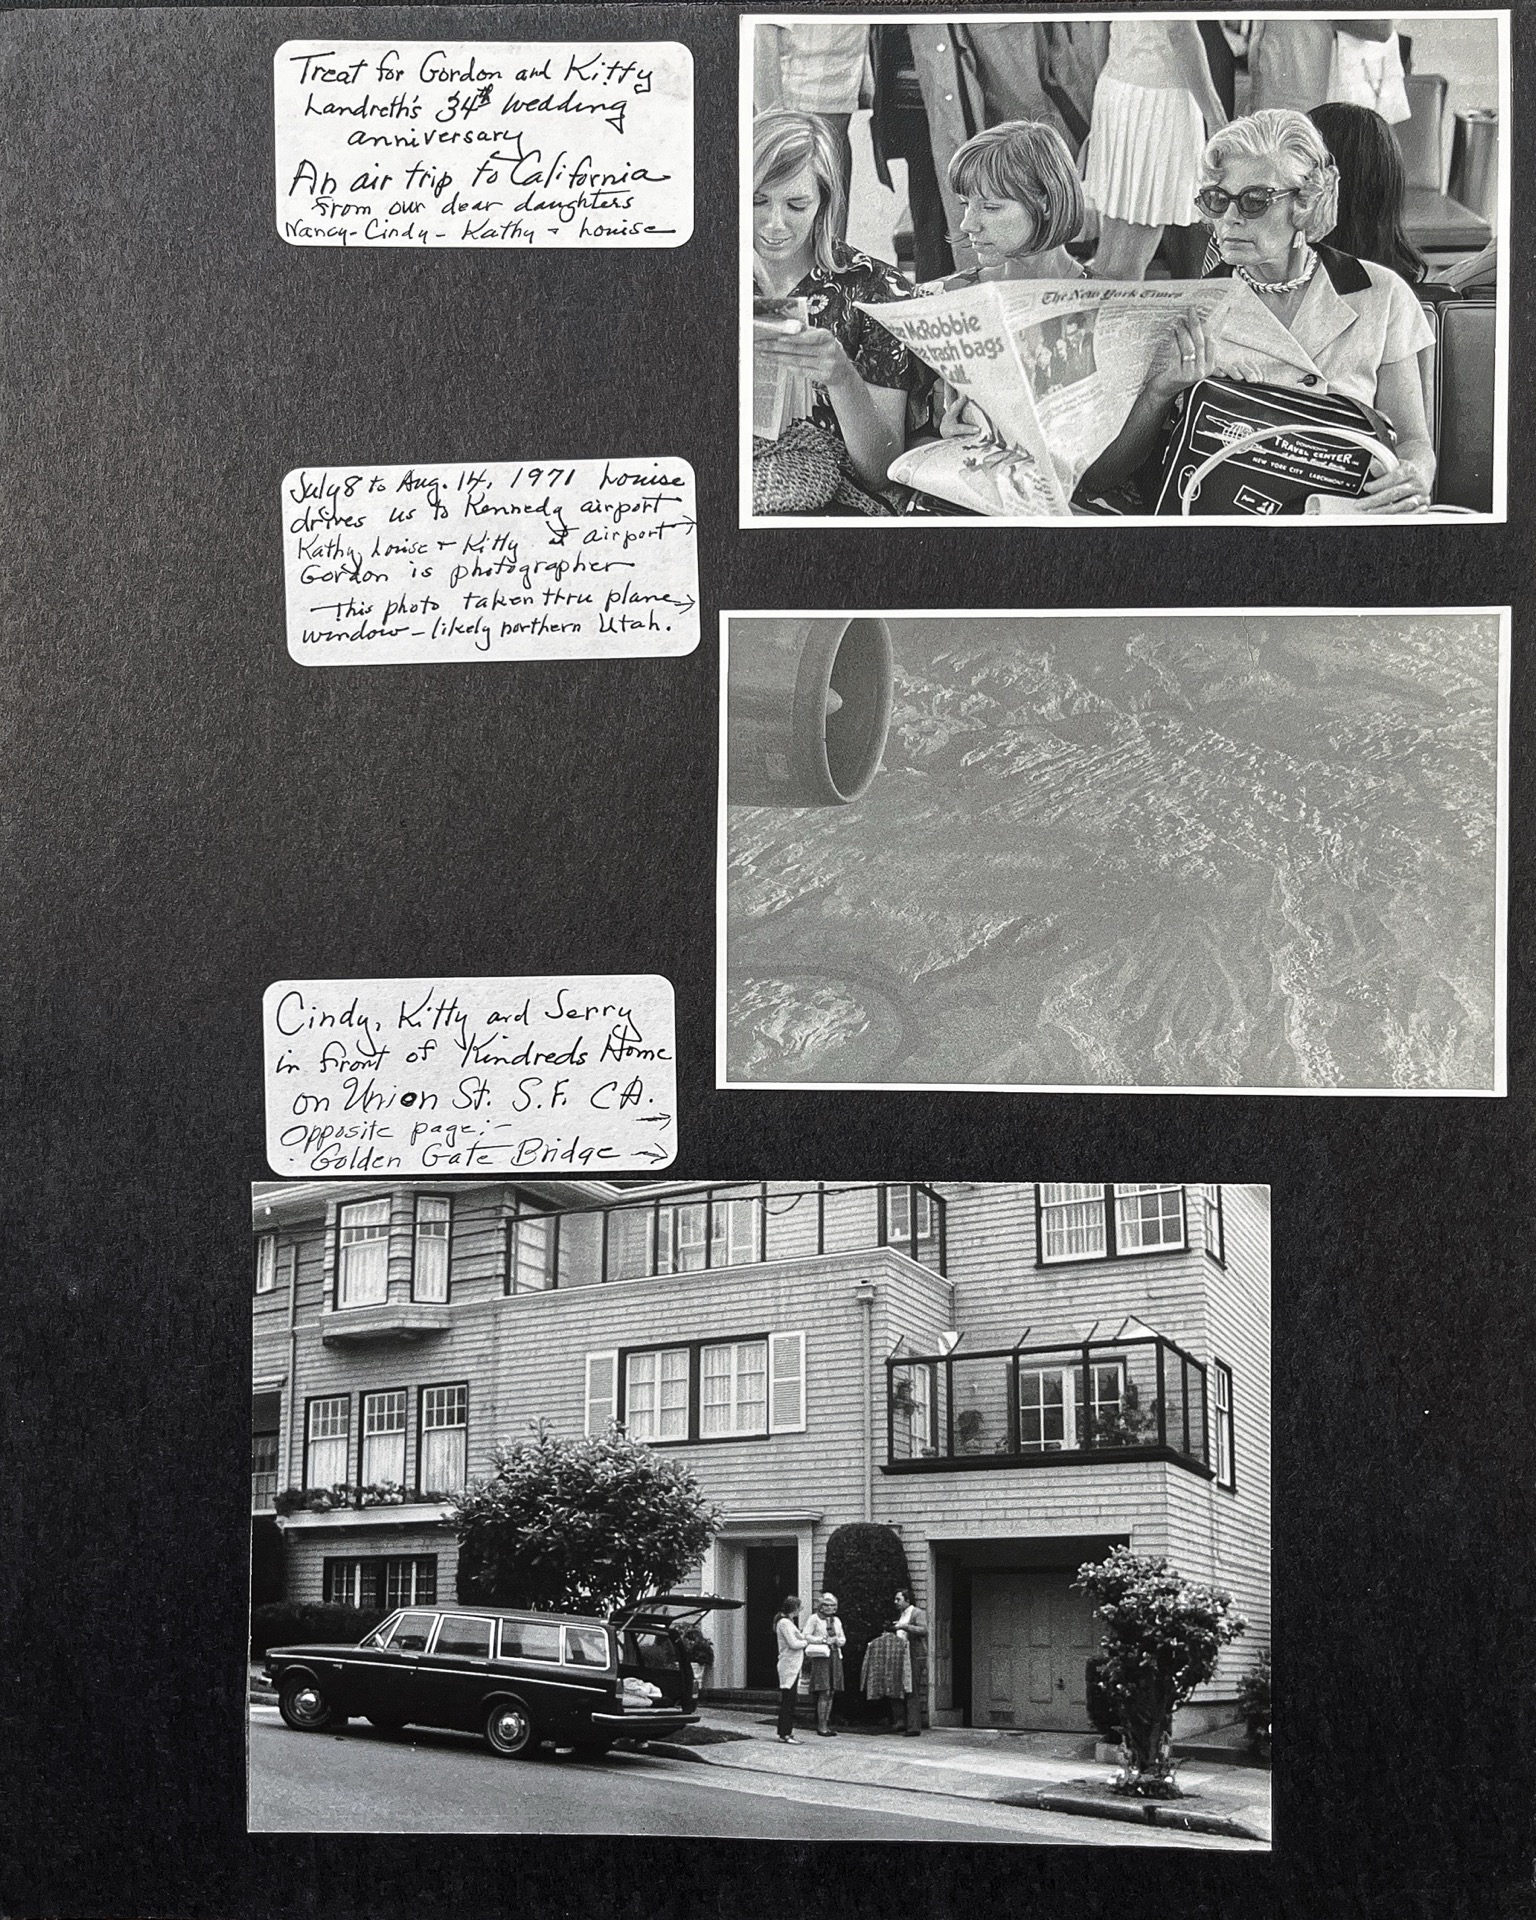 Treat for Gordon and Kitty
Landreth's 34th wedding
anniversary
An air trip to California
from our dear daughters
Nancy - Cindy - Kathy + Louise
The New York Times
McRobbie
trash bags
TRAVEL CENTER
NEW YORK CITY LARCHMONT N.Y.
July 8 to Aug. 14, 1971 Louise
drives us to Kennedy airport
Kathy, Louise + Kitty at airport →
Gordon is photographer
This photo taken thru plane →
window - likely northern Utah.
Cindy, Kitty and Jerry
in front of Kindreds Home
on Union St. S.F. CA.
Opposite page:- →
Golden Gate Bridge →